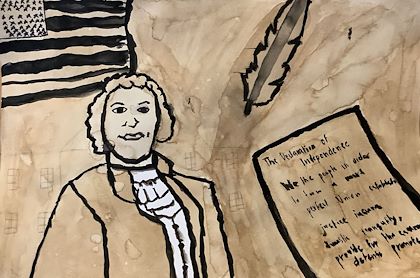 The Declaration of
Independence
We the people in order
to form a more
perfect Union establish
justice insure
domestic tranquility,
provide for the common
defense